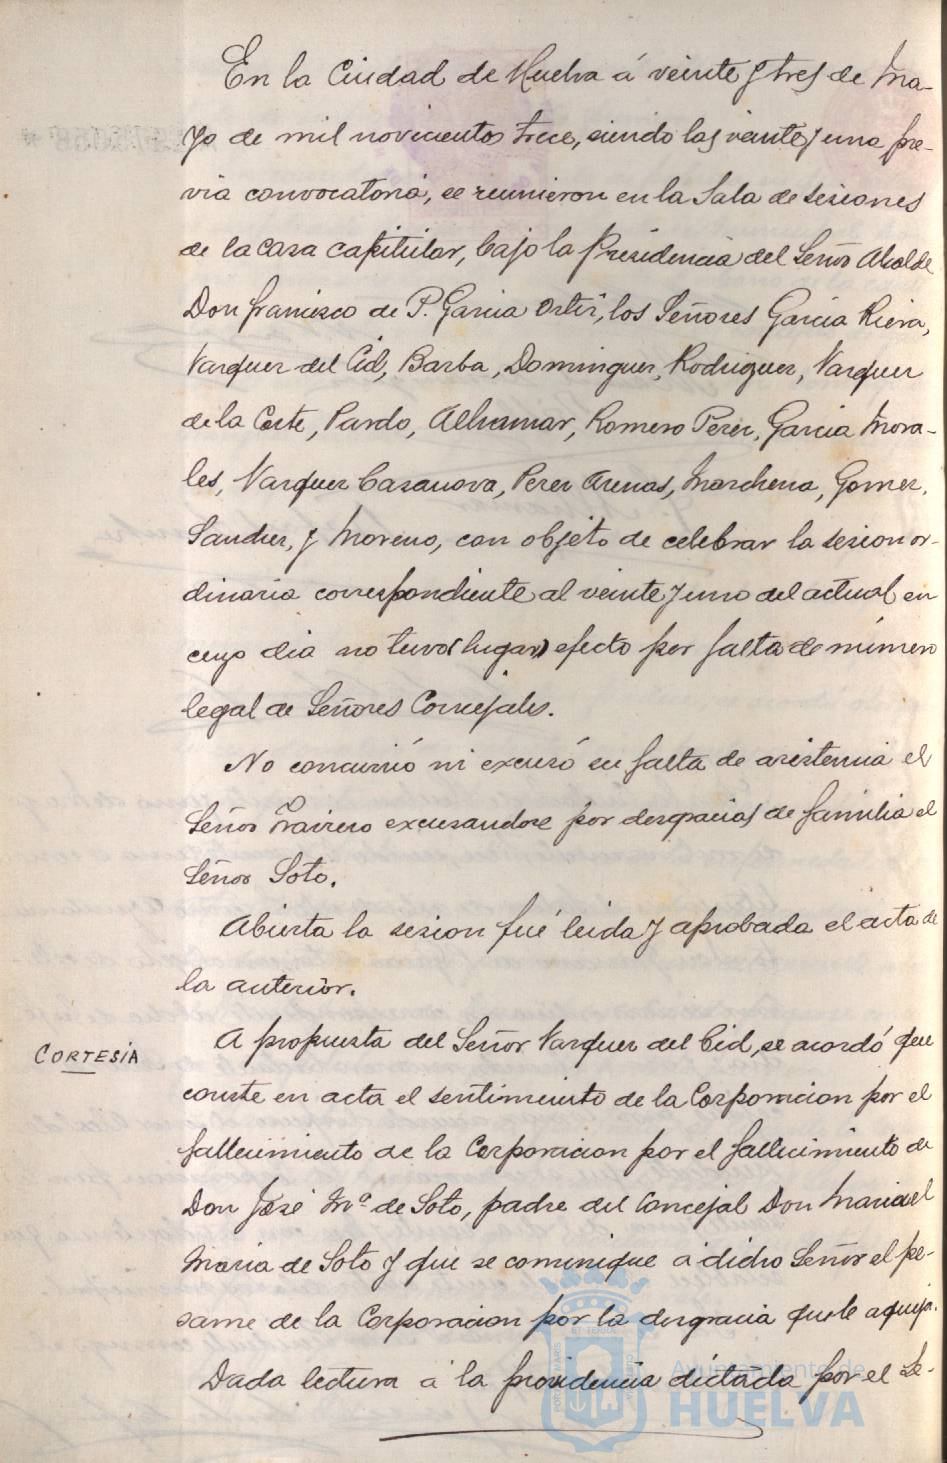 En la Ciudad de Huelva á veinte y tres de Ma-
yo de mil novecientos trece, siendo las veinte y una pre-
via convocatoria, se reunieron en la Sala de sesiones
de la casa capitular, bajo la Presidencia del Señor Alcalde
Don francisco de P. Garcia Ortiz, los Señores Garcia Riera,
Vazquez del Cid, Barba, Dominguez, Rodriguez, Vazquez
de la Corte, Pardo, Alhamar, Romero Perez, Garcia Mora-
les, Vazquez Casanova, Perez Arenas, Marchena, Gomez,
Sanchez, y Moreno, con objeto de celebrar la sesion or-
dinaria correspondiente al veinte y uno del actual en
cuyo dia no tuvo (lugar) efecto por falta de número
legal de Señores Concejales.
No concurrió ni excusó su falta de asistencia el
Señor excusandose por desgracias de familia el
Señor Soto.
Abierta la sesion fué leida y aprobada el acta de
la anterior.
CORTESÍA
A propuesta del Señor Vazquez del Cid, se acordó que
conste en acta el sentimiento de la Corporacion por el
fallecimiento de la Corporacion por el fallecimiento de
Don José Mª de Soto, padre del Concejal Don Manuel
Maria de Soto y que se comunique a dicho Señor el pe-
same de la Corporacion por la desgracia que le aqueja.
Dada lectura á la providencia dictada por el Se-
Ayuntamiento de
HUELVA